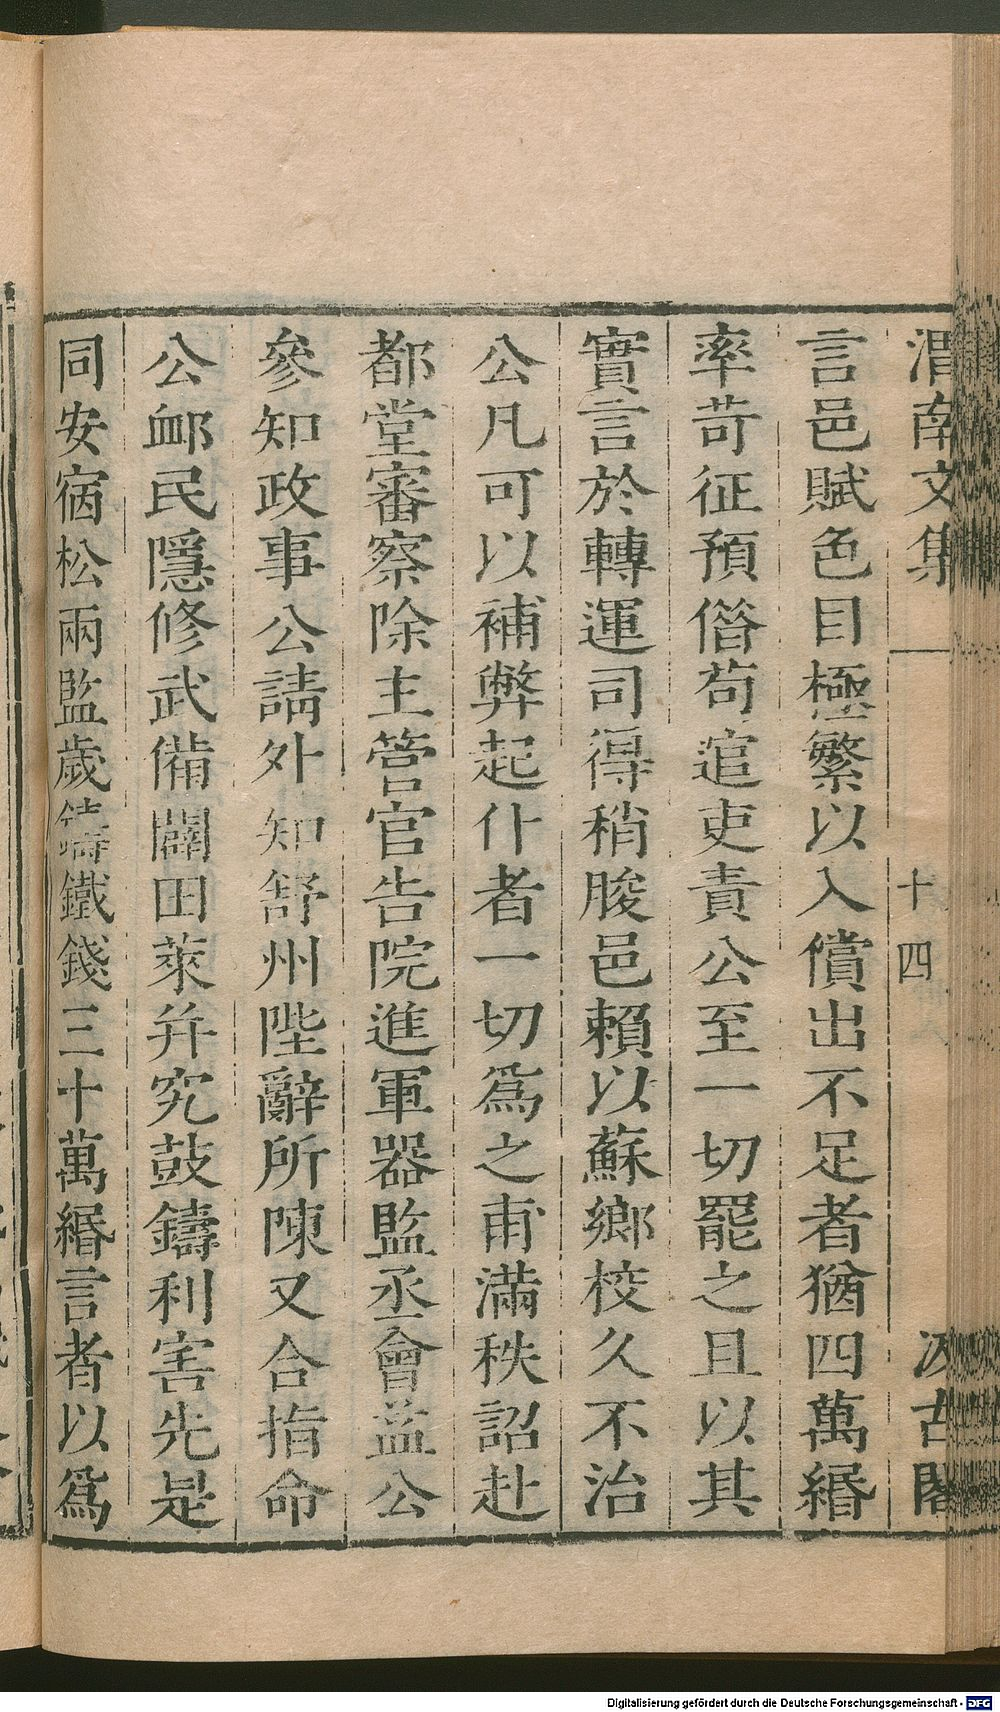 渭南文集
十四
汲古閣
言邑賦色目極繁以入償出不足者猶四萬緡
率苛征預借苟逭吏責公至一切罷之且以其
實言於轉運司得稍朘邑賴以蘇鄉校久不治
公凡可以補弊起仆者一切爲之甫滿秩詔赴
都堂審察除主管官告院進軍器監丞會益公
參知政事公請外知舒州陛辭所陳又合指命
公卹民隱修武備闢田萊并究鼓鑄利害先是
同安宿松兩監歲鑄鐵錢三十萬緡言者以爲
Digitalisierung gefördert durch die Deutsche Forschungsgemeinschaft - DFG